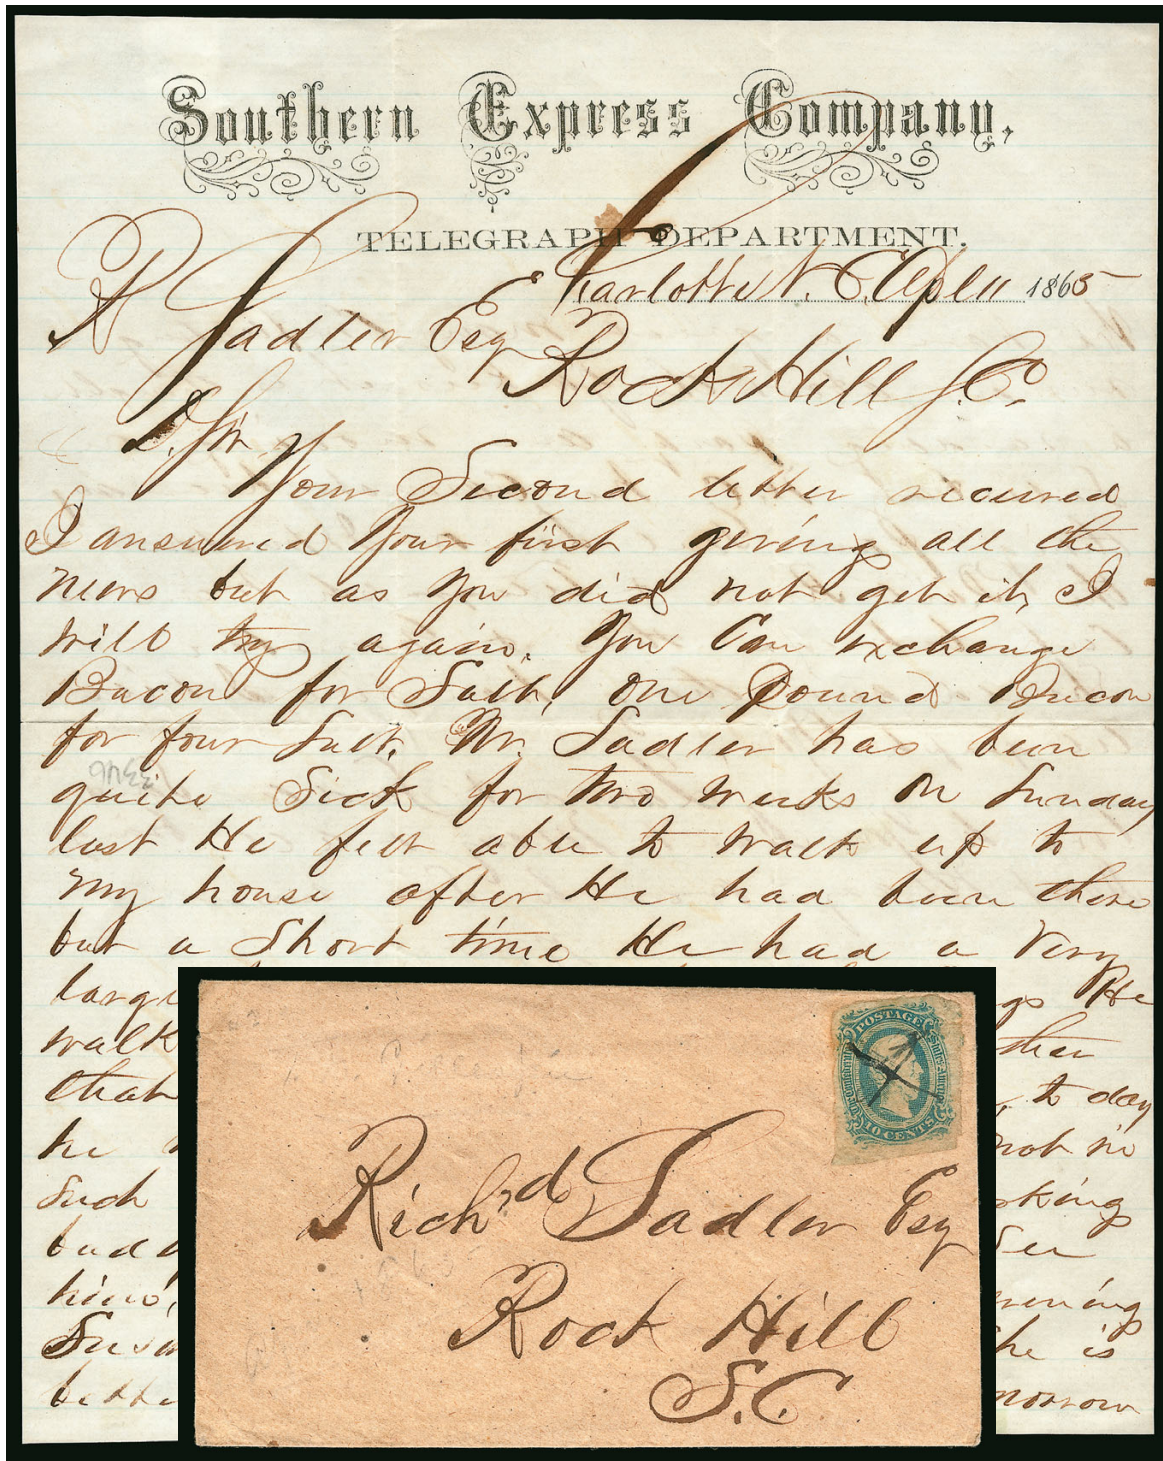 Southern Express Company,
TELEGRAPH DEPARTMENT.
Charlotte N. C. Apl 11 1865
R Sadler Esq
Rock Hill S.C.
D. Sir
Your Second letter received
I answered your first giving all the
news but as you did not get it, I
will try again. You Can exchange
Bacon for Salt, one pound Bacon
for four Salt. Mr. Sadler has been
quite Sick for two weeks on Sunday
last He felt able to walk up to
my house after He had been there
but a Short time He had a very
large gs He
walk ther
that to day
he not in
Such rking
bad See
him, evening
Susan he is
bette morrow
POSTAGE
The Confederate States of America
10 CENTS
Richd Sadler Esq
Rock Hill
S.C.